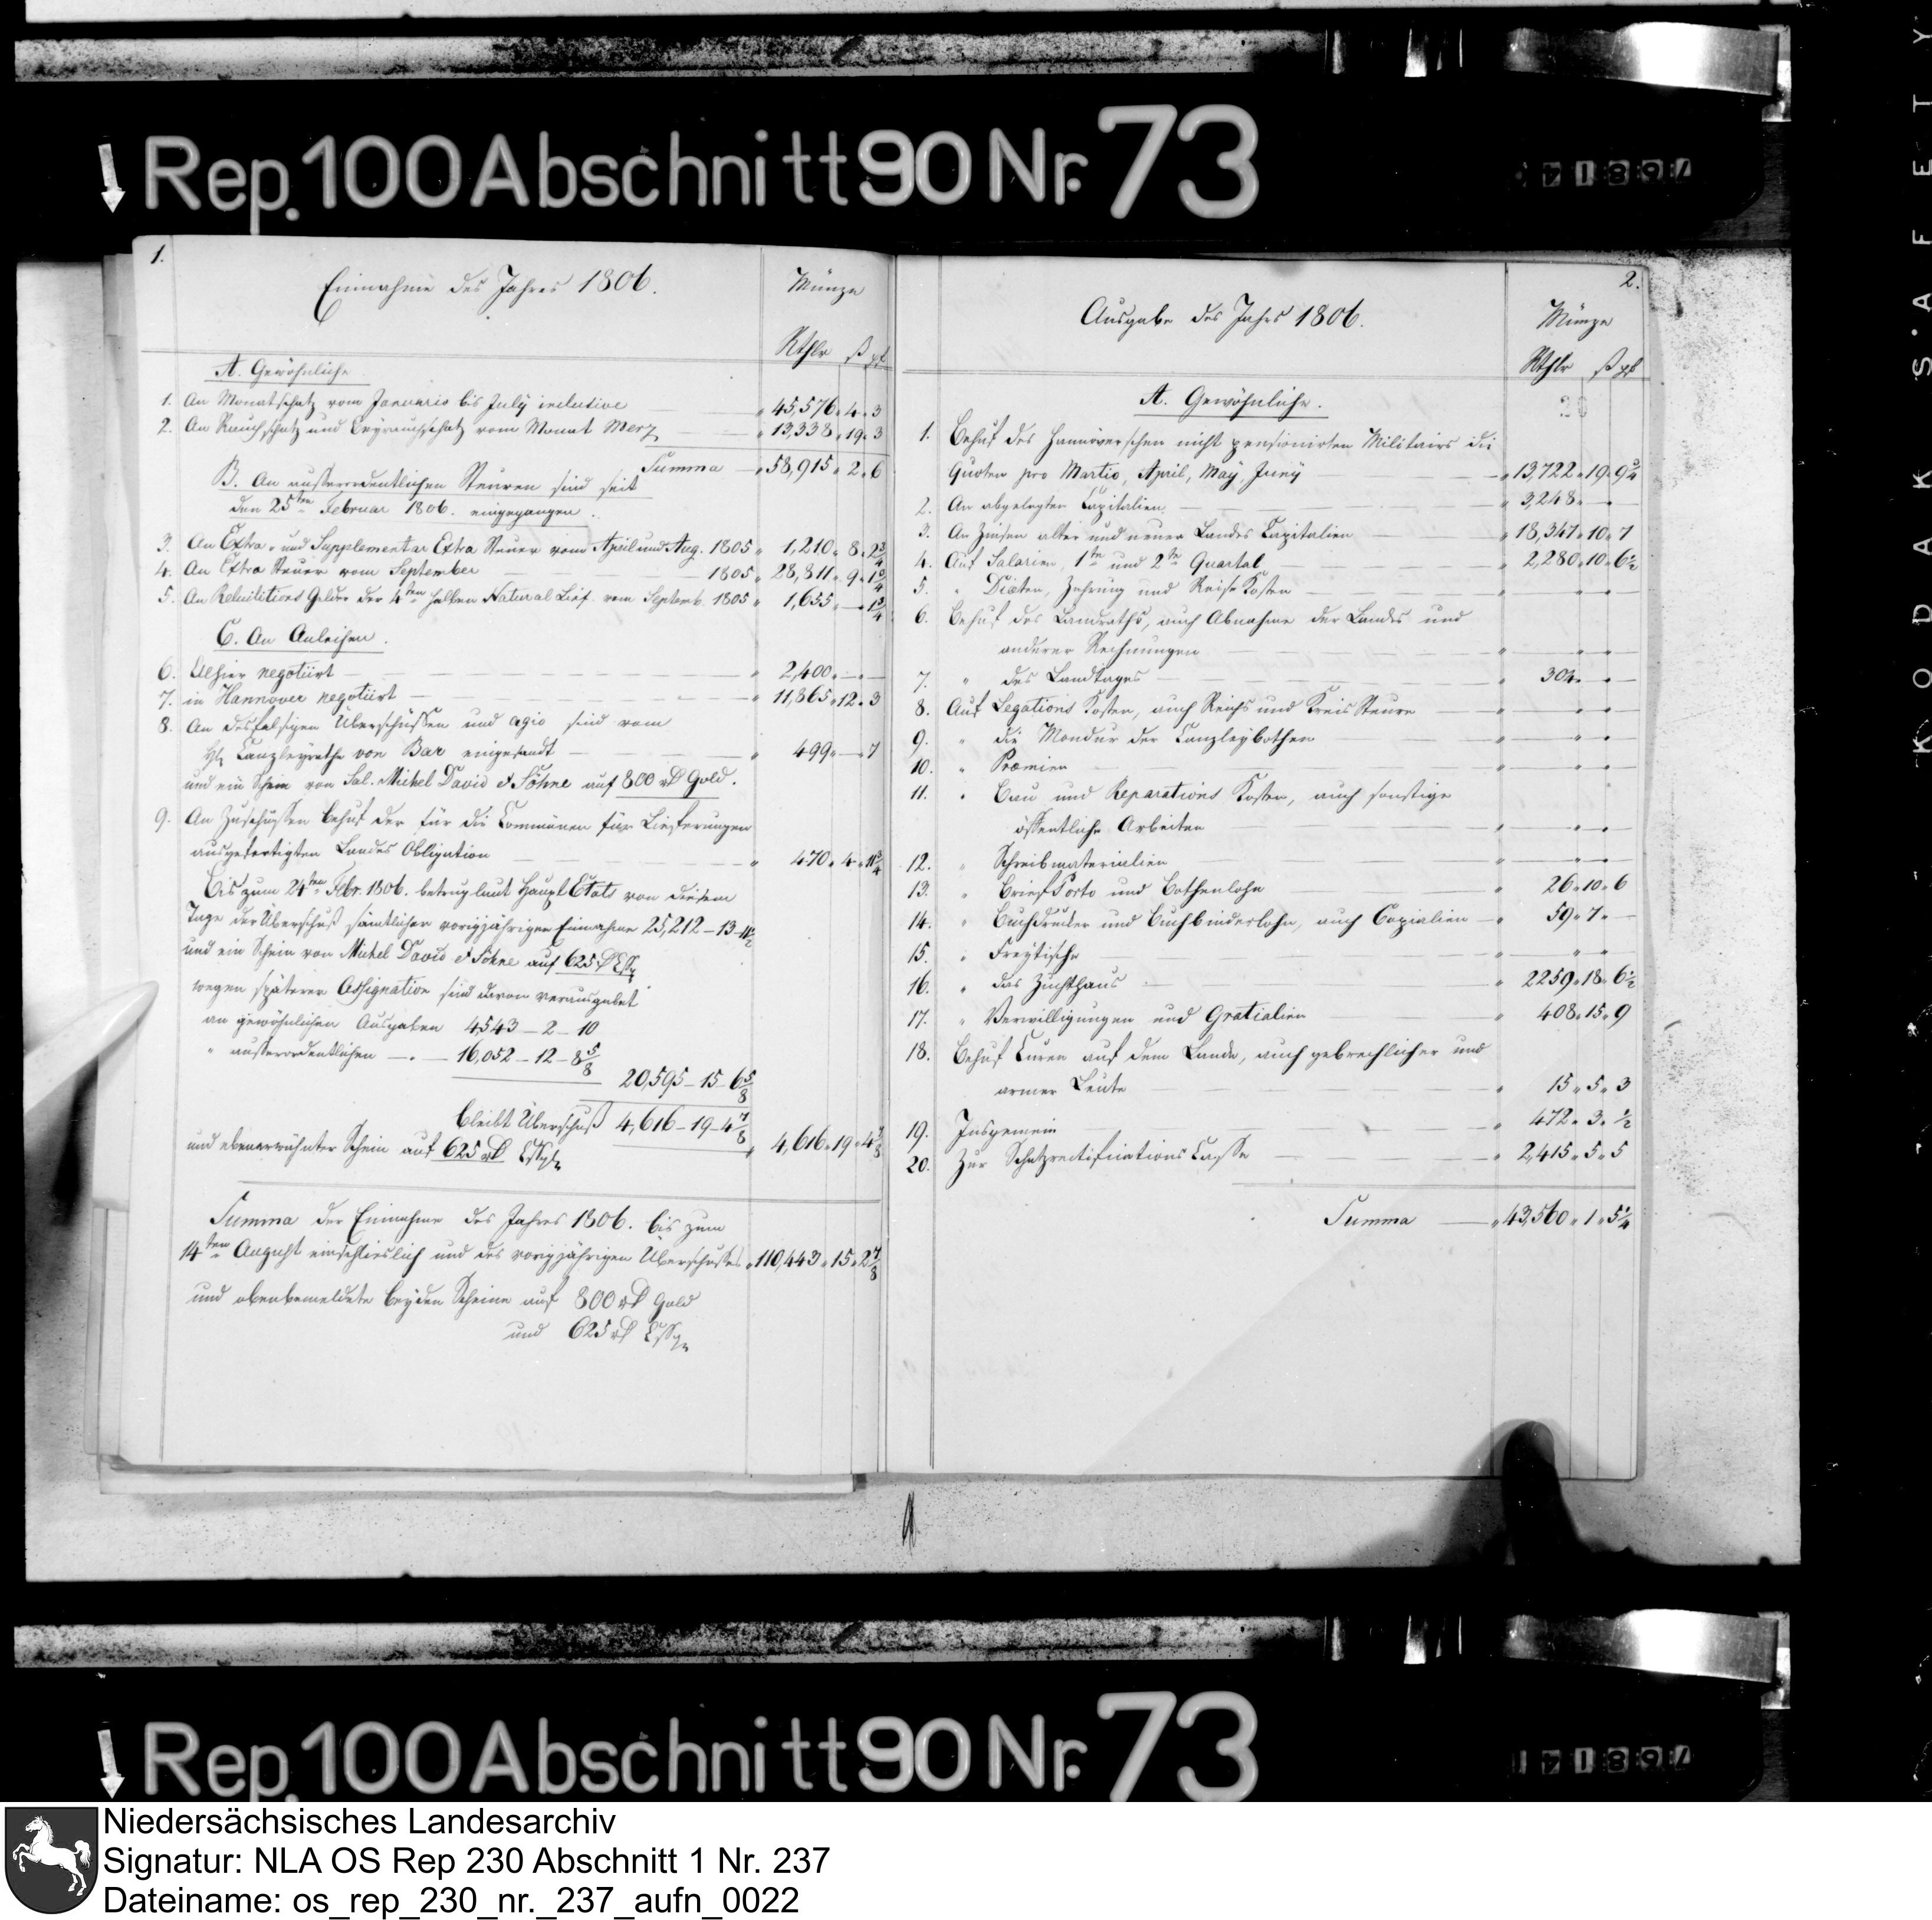 Rep. 100 Abschnitt 90 Nr. 73
1.
Einnahme des Jahres 1806.
Münze
Rthlr ß pf
A. Gewöhnliche
1. An Monatschatz vom Januario bis July inclusive " 45,576 " 4 " 3
2. An Rauchschatz und vom Monat Merz " 13,338 " 19 " 3
Summa " 58,915 " 2 " 6
B. An ausserordentlichen Steuren sind seit
den 25ten Februar 1806. eingegangen.
3. An Extra- und Supplementar Extra Steuer vom April und Aug. 1805 " 1,210 " 8 " 2 3/4
4. An Extra Steuer vom September 1805 " 28,811 " 9 " 1 3/4
5. An Reluitions Gelder der 4ten halben Natural Lief. vom Septemb. 1805 " 1,655 " — " 1 3/4
C. An Anleihen.
6. Alhier negotiirt " 2,400 " — " —
7. in Hannover negotiirt " 11,865 " 12 " 3
8. An desfalsigen Überschüssen und agio sind vom
Canzleyrathe von Bar eingesandt " 499 " — " 7
und ein Schein von Sal. Michel David & Söhne auf 800 rt Gold.
9. An Zuschüssen behuf der für die Communen für Lieferungen
ausgefertigten Landes Obligation " 470 " 4 " 11 3/4
Bis zum 24ten Febr. 1806. betrug laut Haupt Etats von diesem
Tage der Überschuß sämtlicher vorigjährigen Einnahme 25,212 – 13 – 11 1/2
und ein Schein von Michel David & Söhne auf 625 rt
wegen späterer Assignation sind davon verausgabet
an gewöhnlichen Ausgaben 4543 – 2 – 10
" ausserordentlichen — 16,052 – 12 – 8 5/8
20,595 – 15 – 6 5/8
bleibt Überschuß 4,616 – 19 – 4 7/8
und ebenerwähnter Schein auf 625 rt " 4,616 " 19 " 4 7/8
Summa der Einnahme des Jahres 1806. bis zum
14ten August einschlieslich und des vorigjährigen Überschußes " 110,443 " 15 " 2 7/8
und obenbemeldete beyden Scheine auf 800 rt Gold
und 625 rt
2.
Ausgabe des Jahrs 1806.
Münze
Rthlr ß pf
A. Gewöhnliche.
1. Behuf des Hannoverschen nicht pensionirten Militairs die
Quoten pro Martio, April, May, Juny " 13,722 " 19 " 9 3/4
2. An abgelegten Capitalien " 3,248 " — " —
3. An Zinsen alter und neuer Landes Capitalien " 18,347 " 10 " 7
4. Auf Salarien, 1te und 2te Quartal " 2,280 " 10 " 6 1/2
5. " Diæten, Zehrung und Reise Kosten
6. Behuf des Landraths, auch Abnahme der Landes und
anderer Rechnungen
7. " des Landtages " 304 " — " —
8. Auf Legations Kosten, auch Reichs und Kreis Steure
9. " die Mondur der Canzleybothen
10. " Præmien
11. " Bau und Reparations Kosten, auch sonstige
öffentliche Arbeiten
12. " Schreibmaterialien
13. " Brief Porto und Bothenlohn " 26 " 10 " 6
14. " Buchdrucker und Buchbinderlohn, auch Copialien " 59 " 7 " —
15. " Freytische
16. " das Zuchthaus " 2259 " 18 " 6 1/2
17. " Verwilligungen und Gratialien " 408 " 15 " 9
18. Behuf Curen auf dem Lande, auch gebrechlicher und
armer Leute " 15 " 5 " 3
19. Insgemein " 472 " 3 " 1/2
20. Zur Schatzrectifications Casse " 2,415 " 5 " 5
Summa " 43,560 " 1 " 5 1/4
Rep. 100 Abschnitt 90 Nr. 73
KODAK SAFETY
Niedersächsisches Landesarchiv
Signatur: NLA OS Rep 230 Abschnitt 1 Nr. 237
Dateiname: os_rep_230_nr._237_aufn_0022